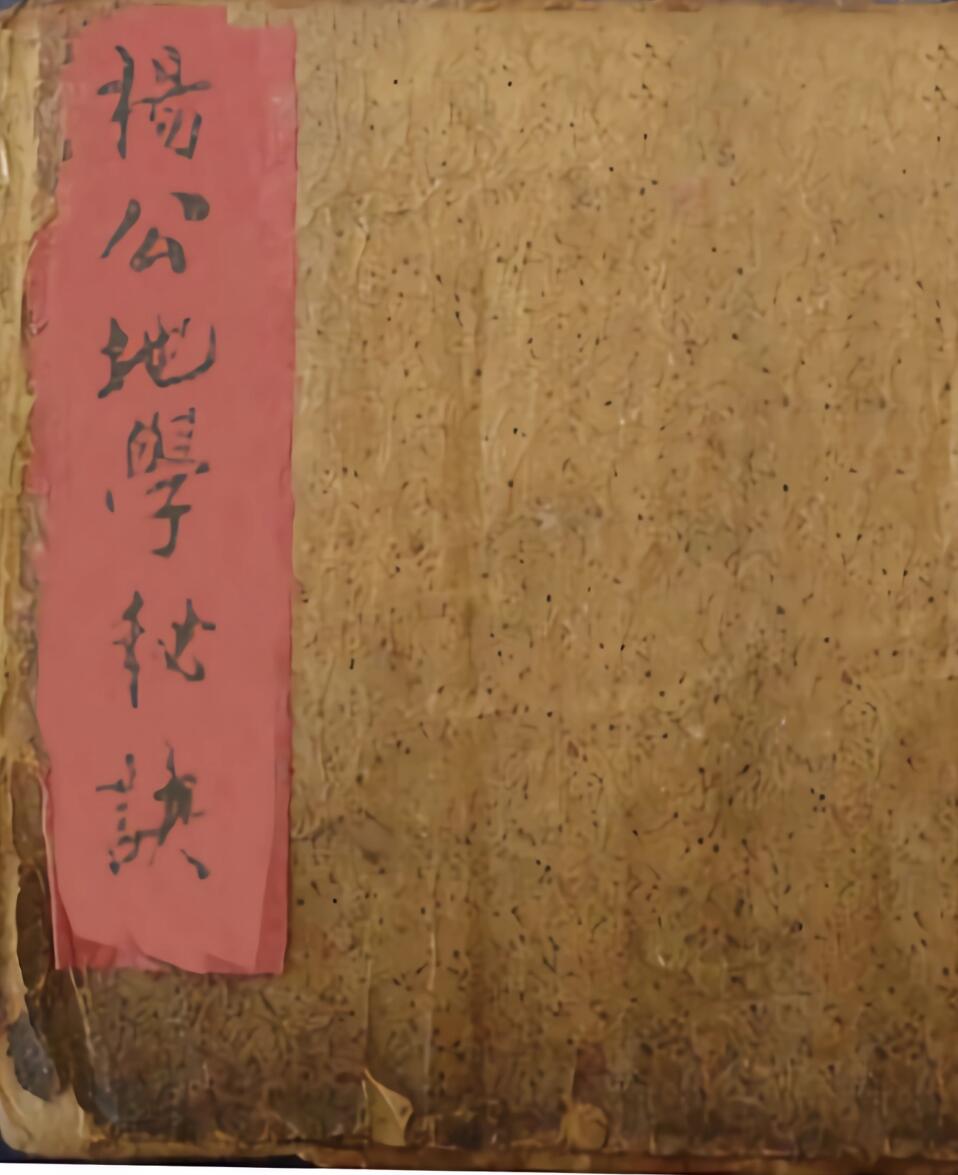 楊公地學秘訣